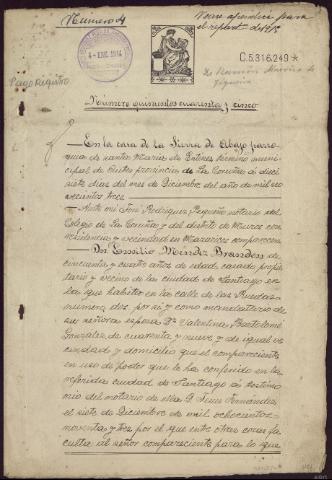 Número 4
C.5.316.249 *
4 - ENE. 1914
Pago registro
Número quinientos cuarenta y cinco
En la casa de la Sierra de Abajo parro-
quia de Santa María de Entines término muni-
cipal de Outes provincia de la Coruña á dieci-
siete dias del mes de Diciembre del año de mil no-
vecientos trece.
Ante mi José Rodríguez Pequeño notario del
Colegio de la Coruña y del distrito de Muros con
residencia y vecindad en Mazaricos comparecen
Dn. Emilio Méndez Brandon de
cincuenta y cuatro años de edad, casado propie-
tario y vecino de la ciudad de Santiago en
la que habita en la calle de las Ruedas
numero diez por si y como mandatario de
su señora esposa Dª Valentina Bartolomé
Gonzalez de cuarenta y nueve y de igual ve-
cindad y domicilio que el compareciente
en uso de poder que le ha conferido en la
referida ciudad de Santiago á testimo-
nio del notario de ella D. Jesus Fernández
el siete de Diciembre de mil ochocientos
noventa y tres por el que entre otras cosas fa-
culta al señor compareciente para lo que